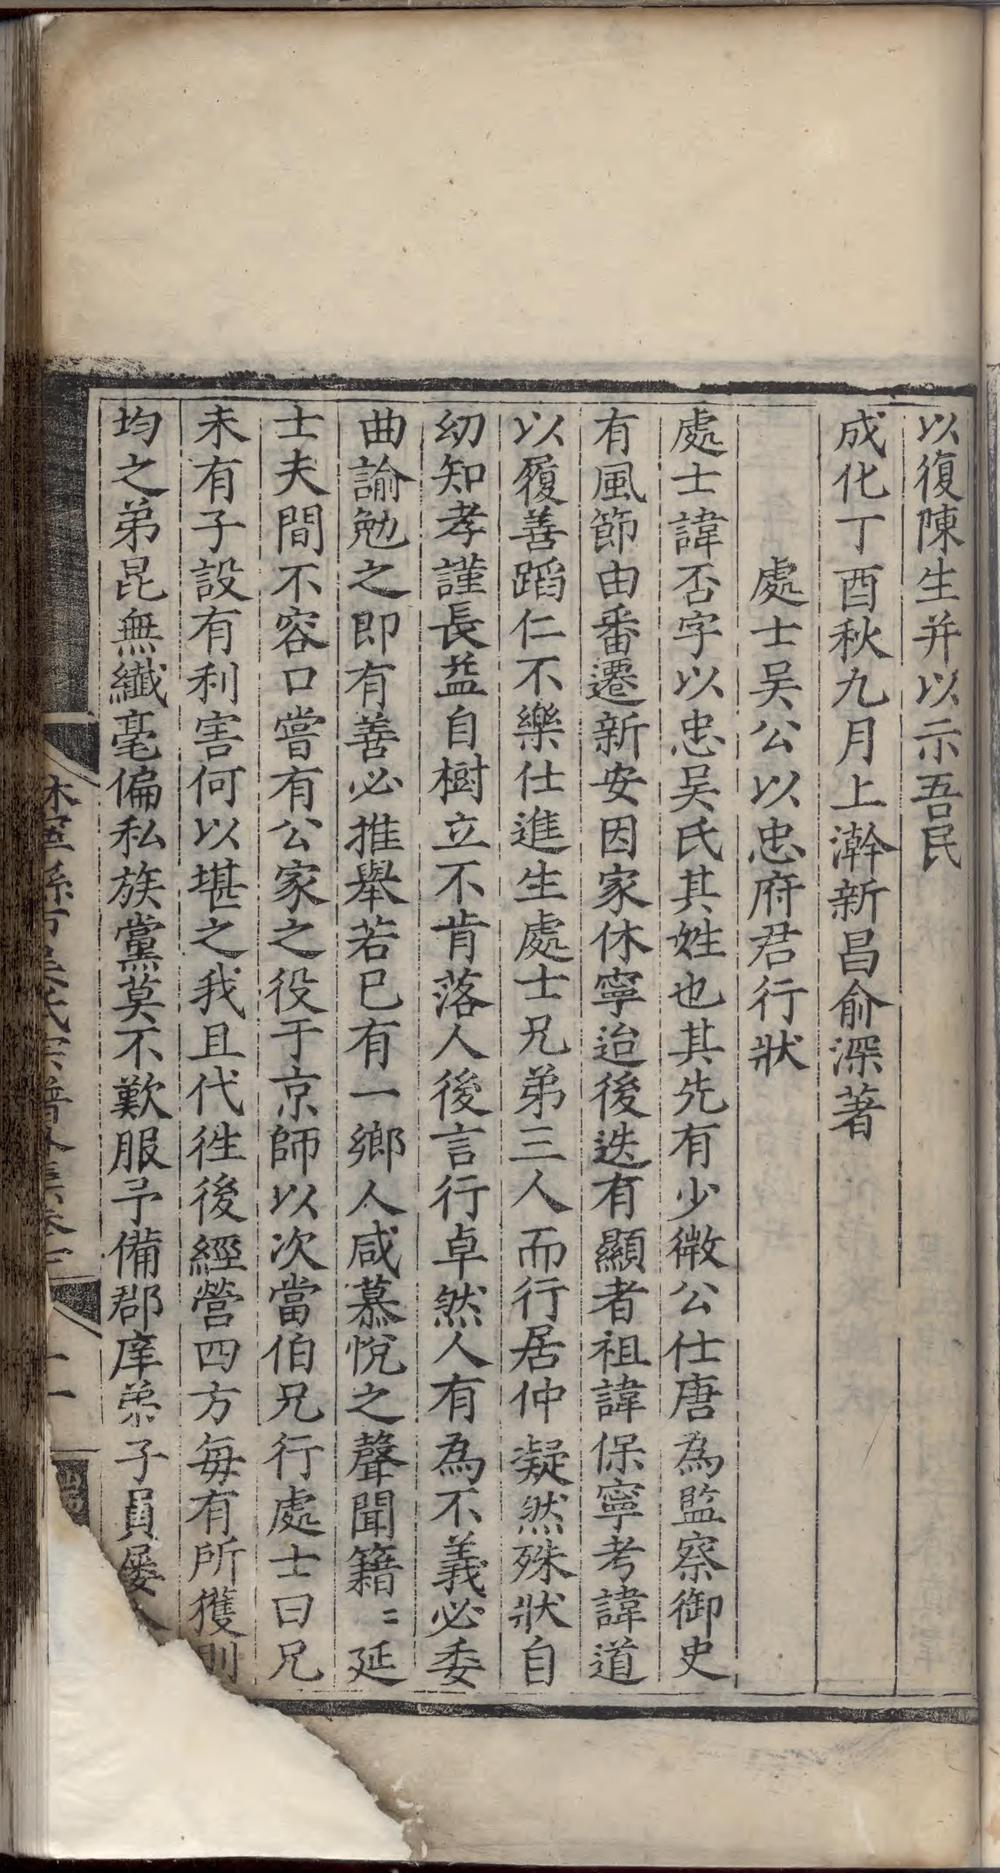 以復陳生并以示吾民
成化丁酉秋九月上澣新昌俞深著
處士吴公以忠府君行狀
處士諱否字以忠吴氏其姓也其先有少微公仕唐為監察御史
有風節由番遷新安因家休寧迨後迭有顯者祖諱保寧考諱道
以履善蹈仁不樂仕進生處士兄弟三人而行居仲凝然殊狀自
幼知孝謹長益自樹立不肯落人後言行卓然人有為不義必委
曲諭勉之即有善必推舉若已有一鄉人咸慕悅之聲聞籍〻延
士夫間不容口嘗有公家之役于京師以次當伯兄行處士曰兄
未有子設有利害何以堪之我且代徃後經營四方每有所獲則
均之弟昆無纖毫偏私族黨莫不歎服予備郡庠弟子員屢
休寧縣市吴氏宗譜
十一